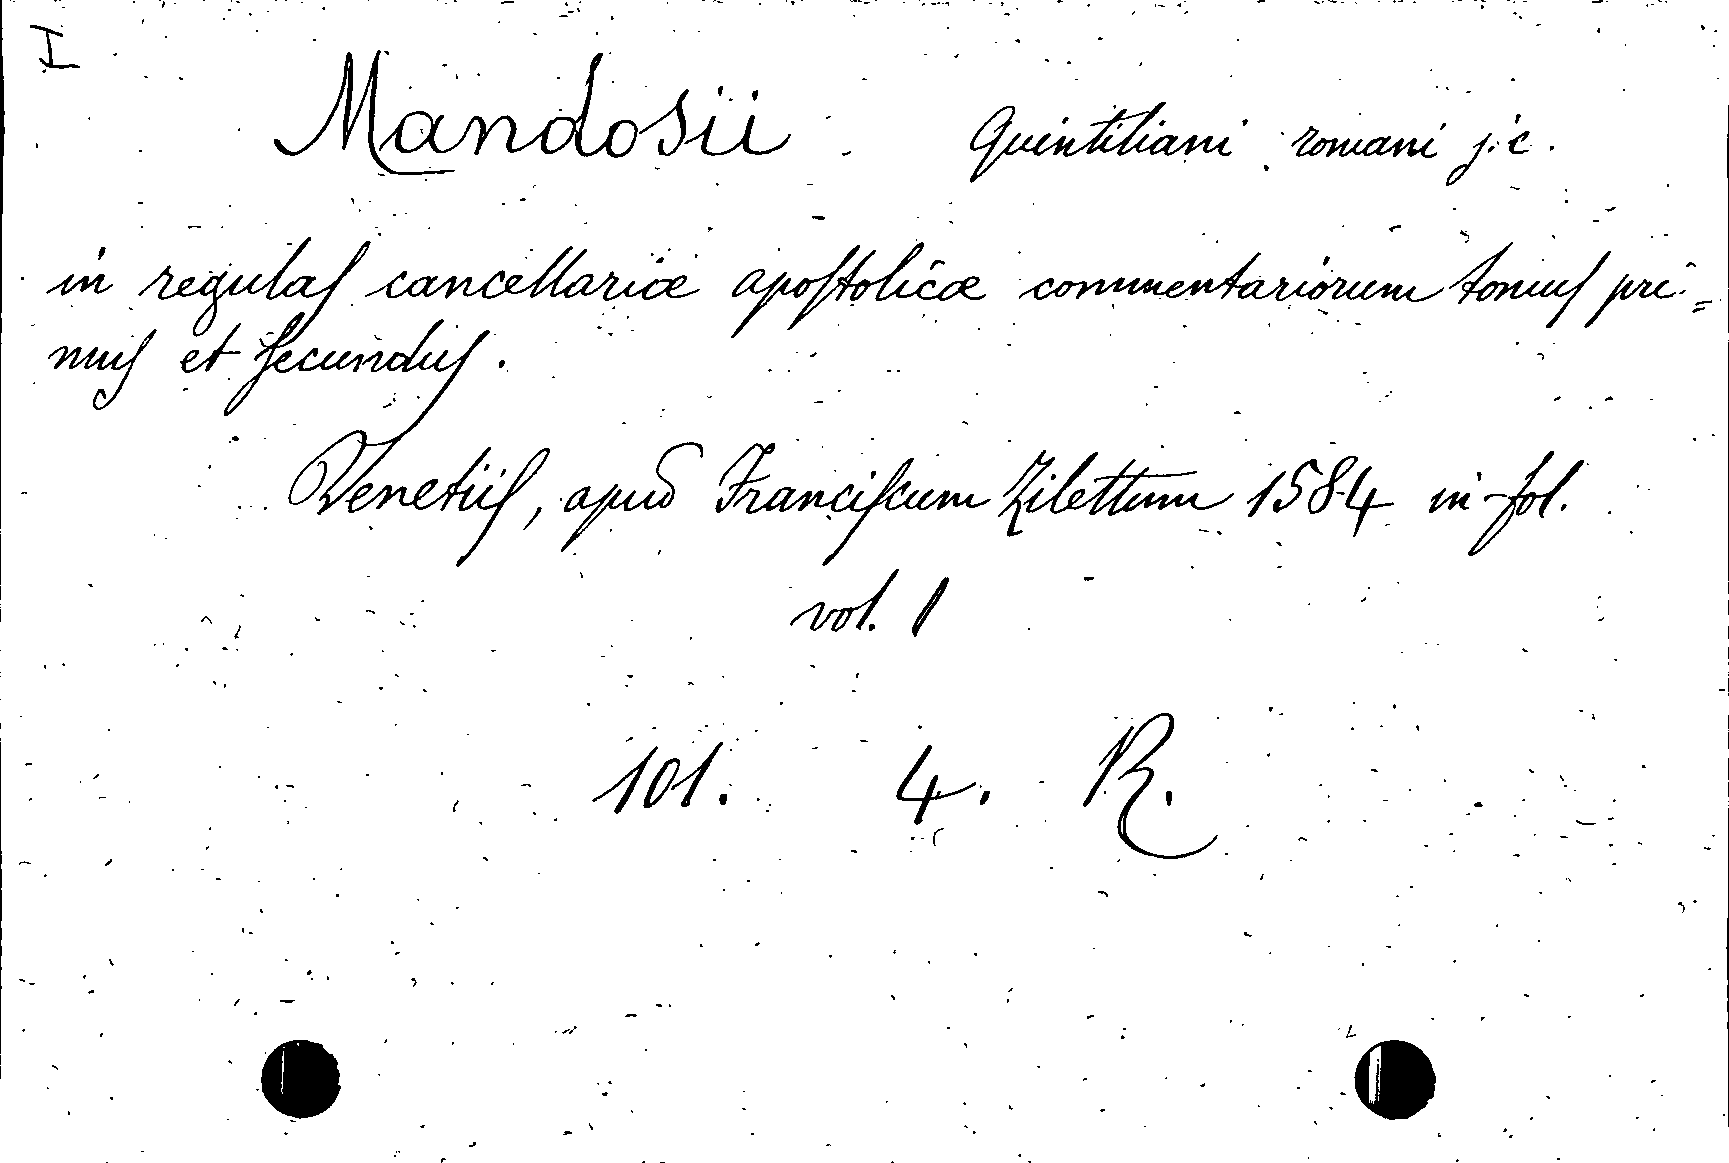 I
Mandosii Quintiliani romani j. c.
in regulas cancellariæ apostolicæ commentariorum tomus pri=
mus et secundus.
Venetiis, apud Franciscum Zilettum 1584 in-fol.
vol. 1
101. 4. R.